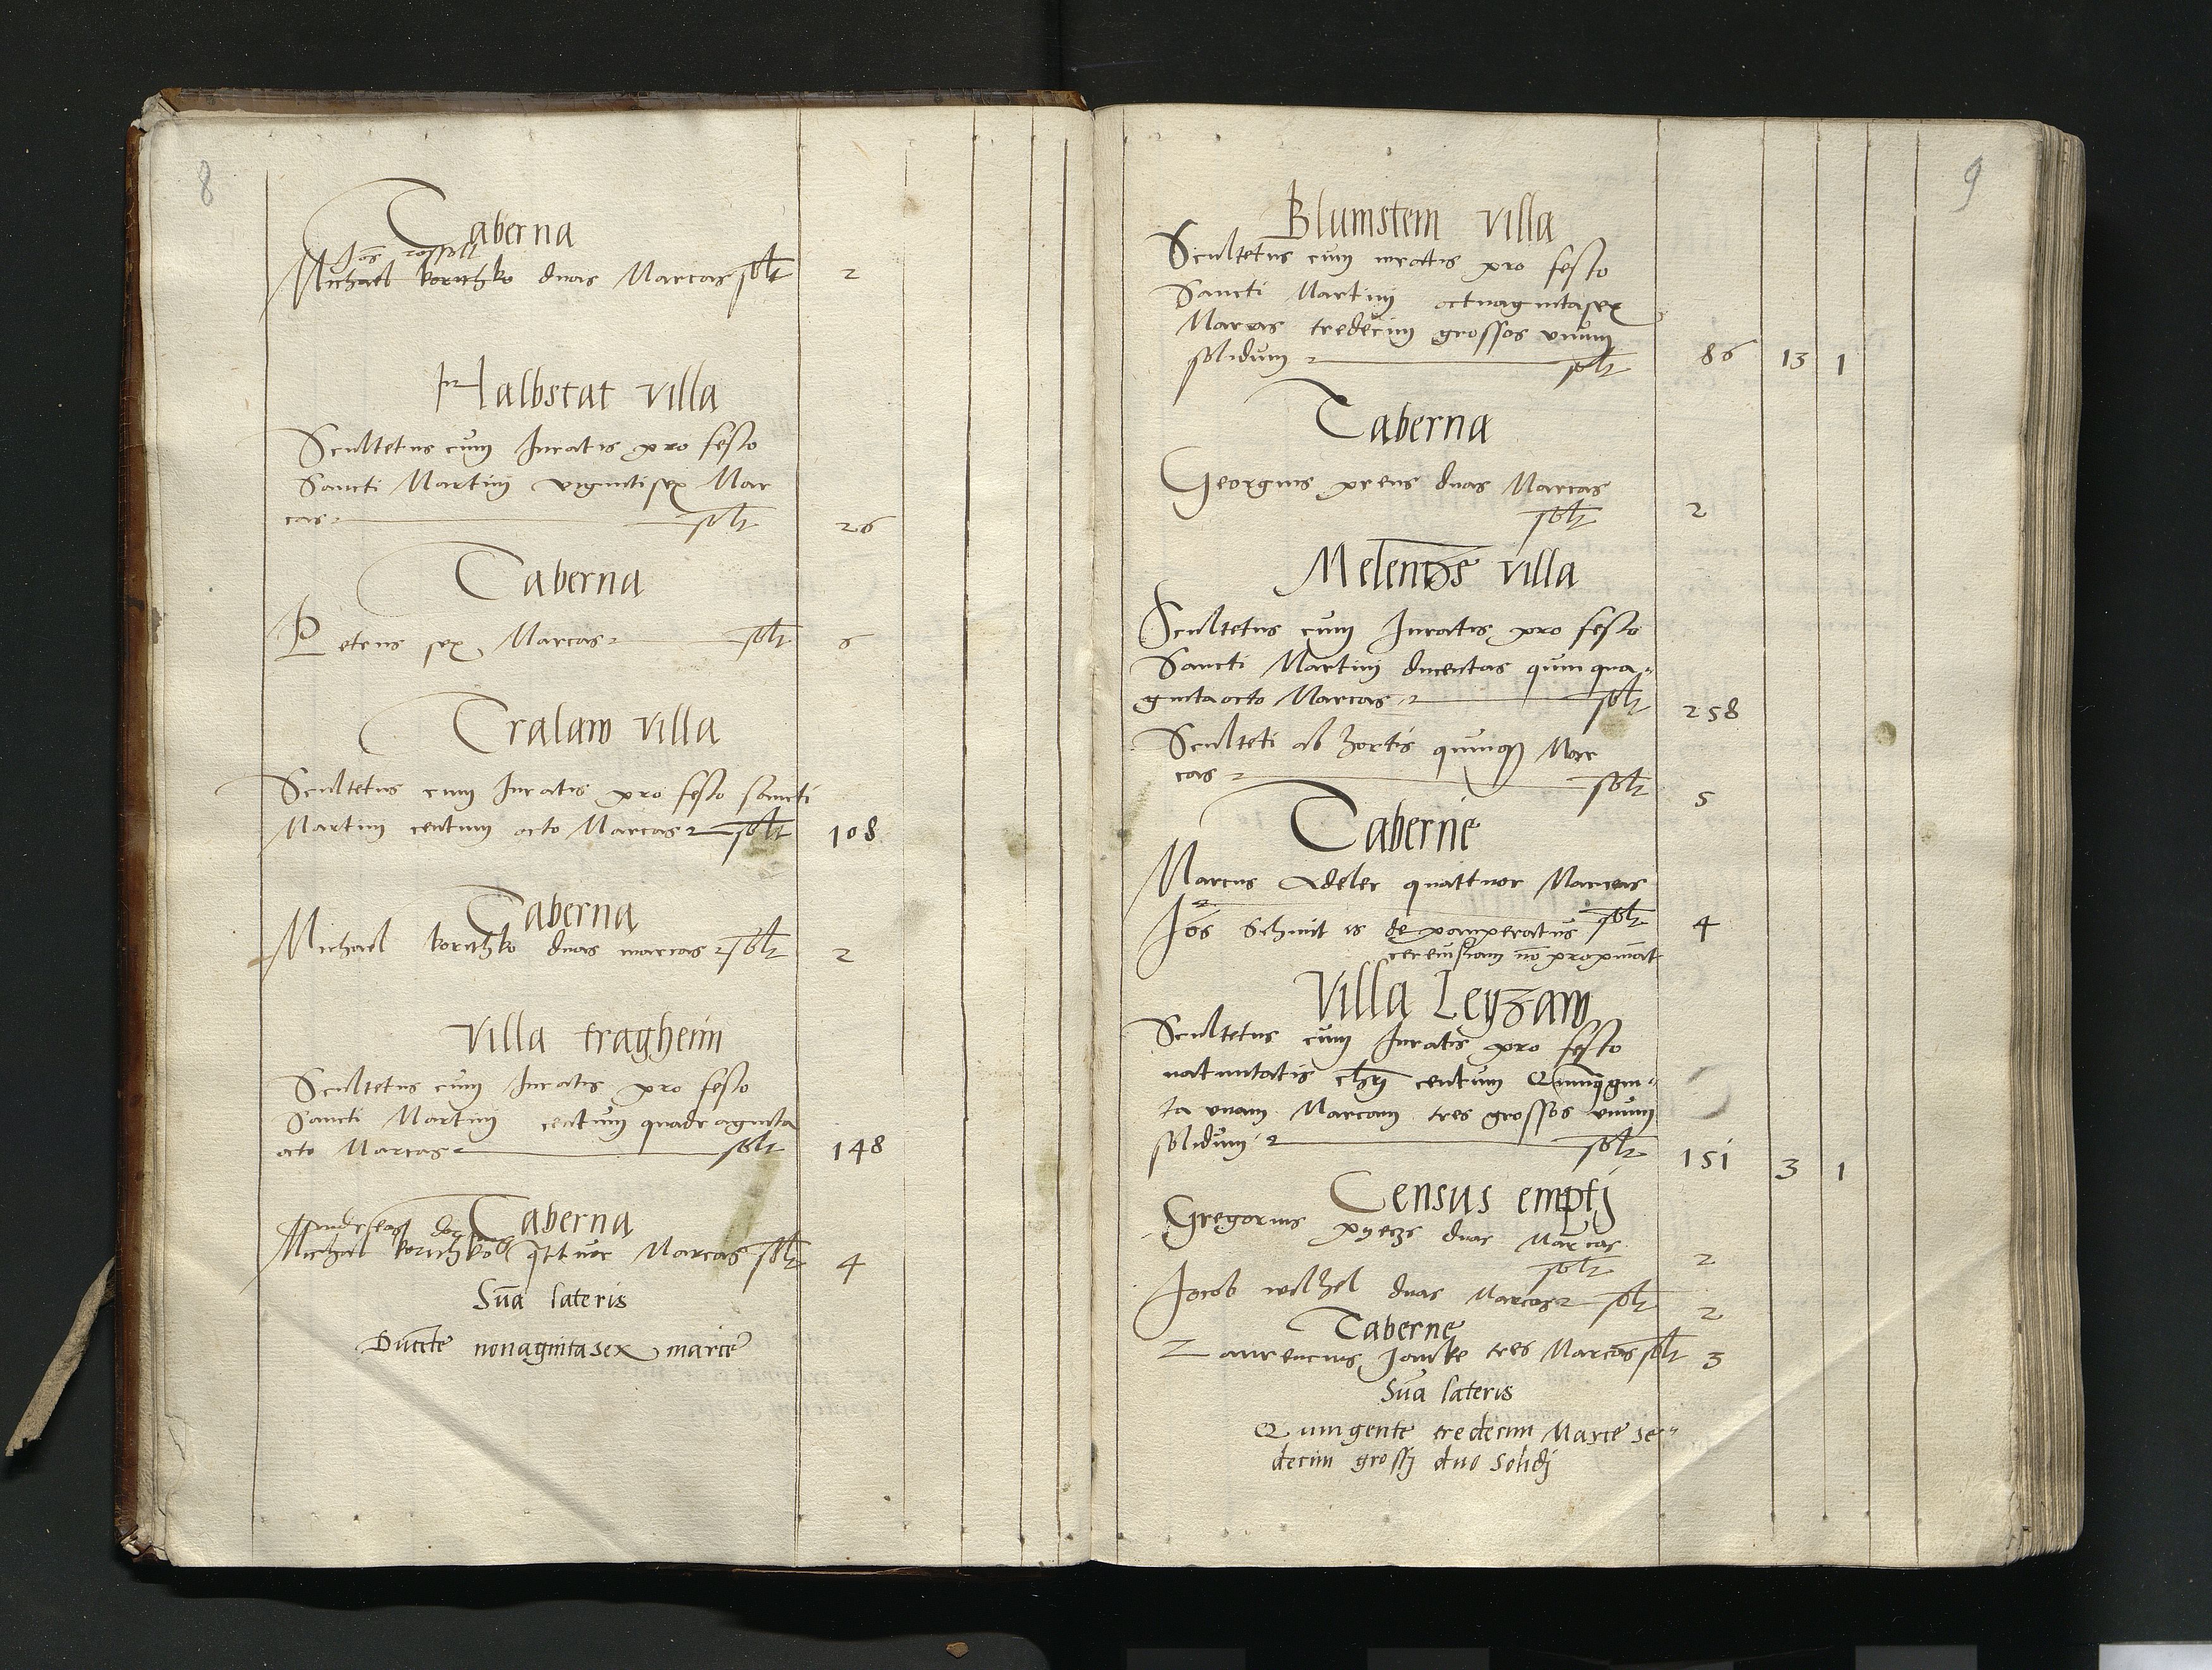 8
Taberna
Jos rossoll
Michael korithko duas Marcas solt 2
Halbstat villa
Scultetus cum Juratis pro festo
Sancti Martinj vigintisex Mar
cas solt 26
Taberna
Petrus sex Marcas solt 6
Tralaw villa
Scultetus cum Juratis pro festo sancti
Martinj centum octo Marcas solt 108
Taberna
Michael korithko duas marcas solt 2
Villa tragheim
Scultetus cum Juratis pro festo
Sancti Martinj centum quadraginta
octo Marcas solt 148
Taberna
Andreas
Michael korithko qttuor Marcas solt 4
Sua lateris
Ducete nonagintasex marce
9
Blumstein villa
Scultetus cum iuratis pro festo
Sancti Martinj octuagintasex
Marcas tredecim grossos vnum
solidum solt 86 13 1
Taberna
Georgius preus duas Marcas
solt 2
Melenos villa
Scultetus cum Juratis pro festo
Sancti Martinj ducentas quinqua"
gintaocto Marcas solt 258
Sculteti ab hortis quinq Mar
cas solt 5
Taberne
Marcus Adeler quattuor Marcas
solt 4
Jos Schmit is depauperatus
cereuisiam no propinat
Villa Leyzaw
Scultetus cum Juratis pro festo
natiuitatis chri centum Quinqgin"
ta vnam Marcam tres grossos vnum
solidum solt 151 3 1
Census emptj
Gregorius duas Marcas
solt 2
Jacob wilhel duas Marcas solt 2
Taberne
Laurencius Janke tres Marcas solt 3
Sua lateris
Quingente tredecim Marce se"
decim grossj duo solidj